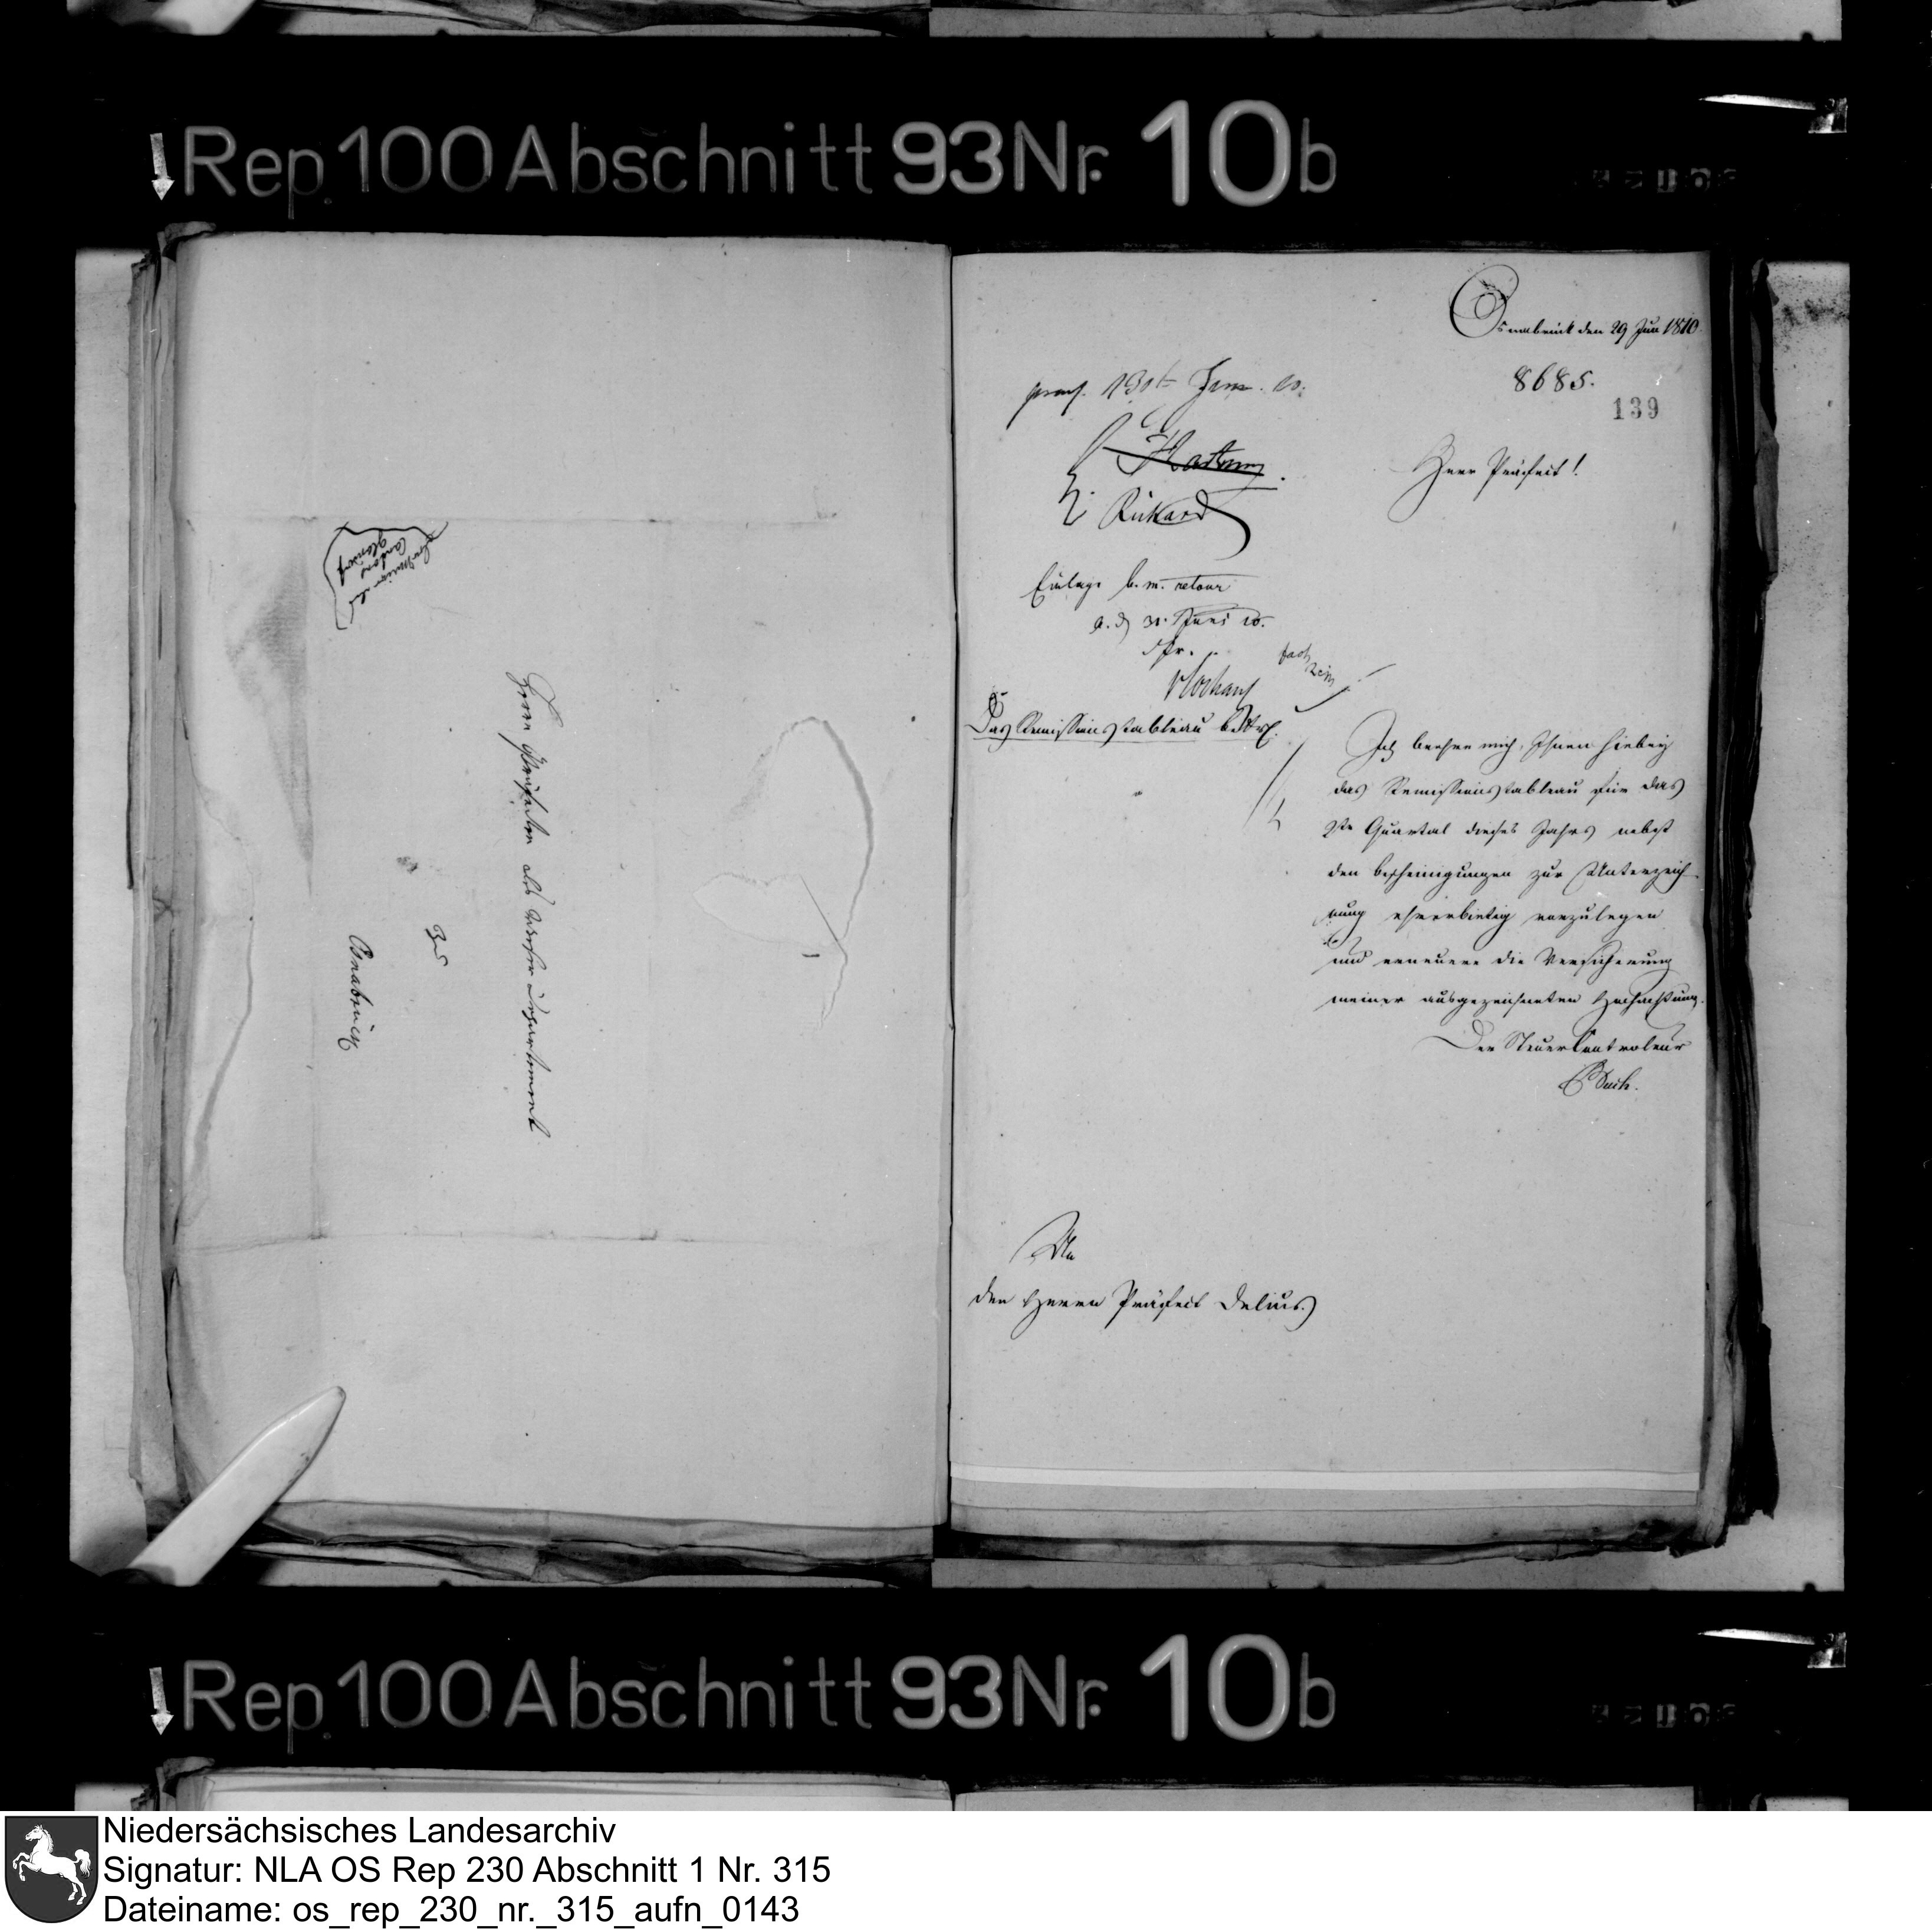 Rep. 100 Abschnitt 93 Nr. 10b
Herrn Präfecten als Weser Departement
zu
Osnabrück
Osnabrück den 29 Jun 1810.
8685.
139
praes. 130t Jun. 10.
Hartung
Rickard
Herr Präfect!
Einlage b. m. retour
30. Juni 10.
Das Remissionstableau betr.
Ich beehre mich, Ihnen hiebey
das Remissionstableau für das
2te Quartal dieses Jahrs nebst
den bescheinigungen zur Unterzeich
nung ehrerbietig vorzulegen
und erneuere die Versicherung
meiner ausgezeichneten Hochachtung.
Der Steuer Controleur
An
den Herrn Präfect Delius.
Rep. 100 Abschnitt 93 Nr. 10b
Niedersächsisches Landesarchiv
Signatur: NLA OS Rep 230 Abschnitt 1 Nr. 315
Dateiname: os_rep_230_nr._315_aufn_0143